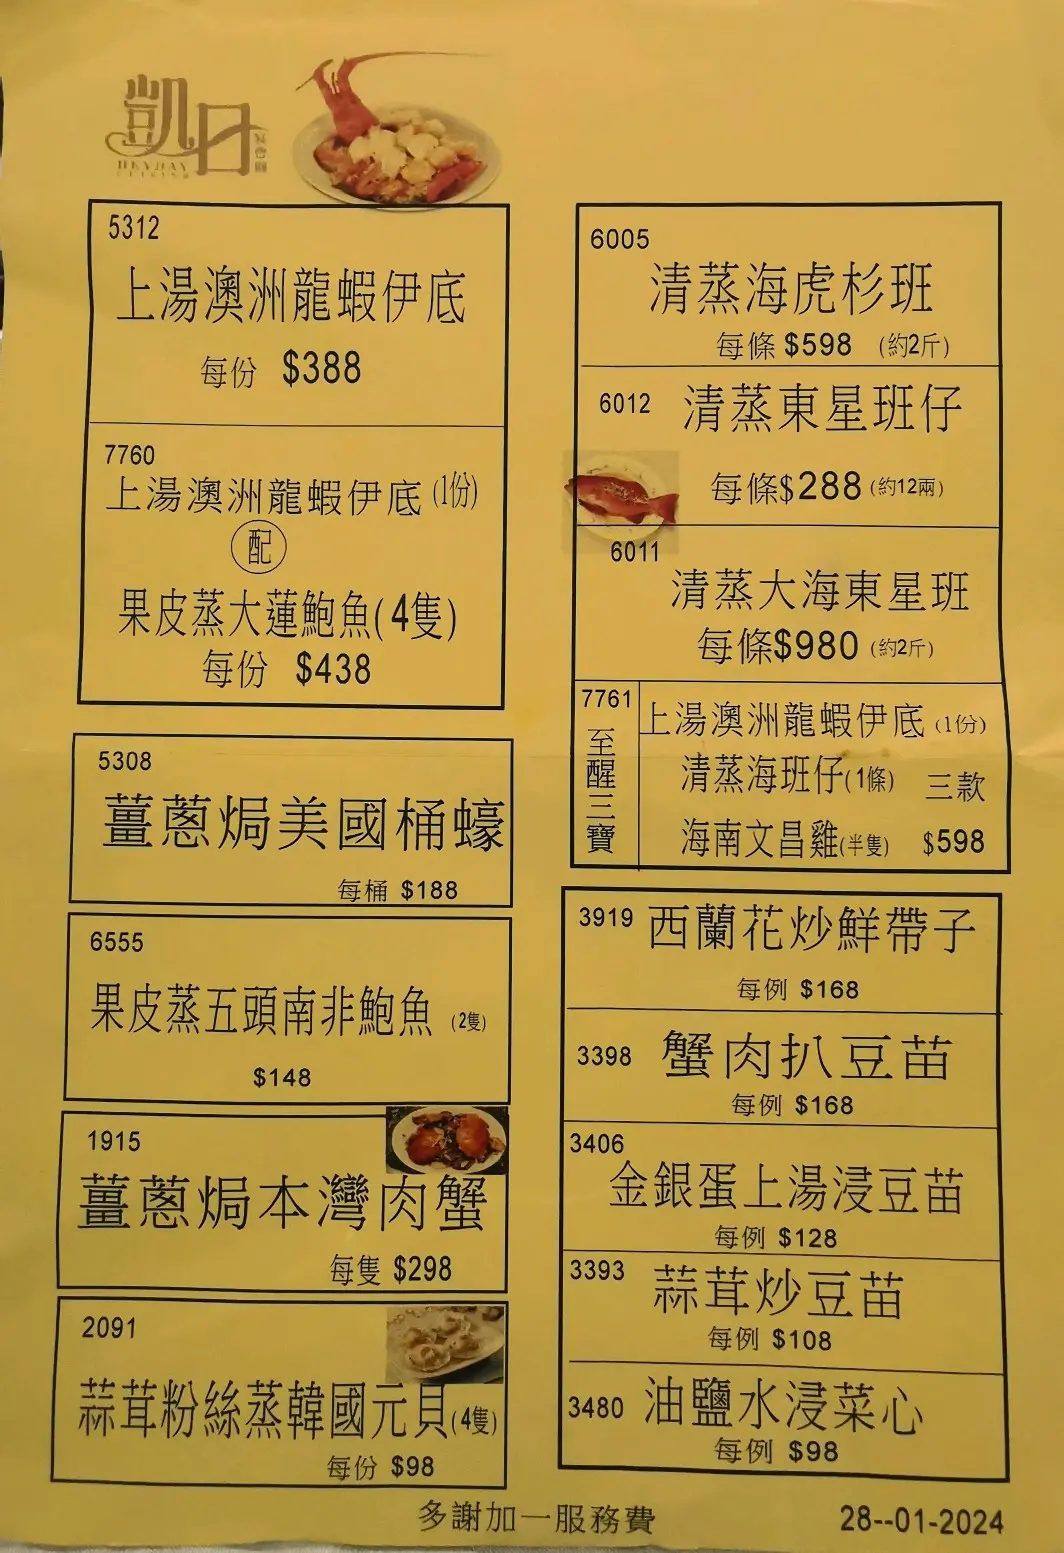 凱日
HEYDAY
CUISINE
5312
上湯澳洲龍蝦伊底
每份 $388
7760
上湯澳洲龍蝦伊底(1份)
配
果皮蒸大蓮鮑魚(4隻)
每份 $438
5308
薑蔥焗美國桶蠔
每桶 $188
6555
果皮蒸五頭南非鮑魚 (2隻)
$148
1915
薑蔥焗本灣肉蟹
每隻 $298
2091
蒜茸粉絲蒸韓國元貝(4隻)
每份 $98
6005
清蒸海虎杉班
每條 $598 (約2斤)
6012 清蒸東星班仔
每條$288 (約12兩)
6011
清蒸大海東星班
每條$980 (約2斤)
7761
至醒三寶
上湯澳洲龍蝦伊底 (1份)
清蒸海班仔(1條) 三款
海南文昌雞(半隻) $598
3919 西蘭花炒鮮帶子
每例 $168
3398 蟹肉扒豆苗
每例 $168
3406
金銀蛋上湯浸豆苗
每例 $128
3393 蒜茸炒豆苗
每例 $108
3480 油鹽水浸菜心
每例 $98
多謝加一服務費 28--01-2024